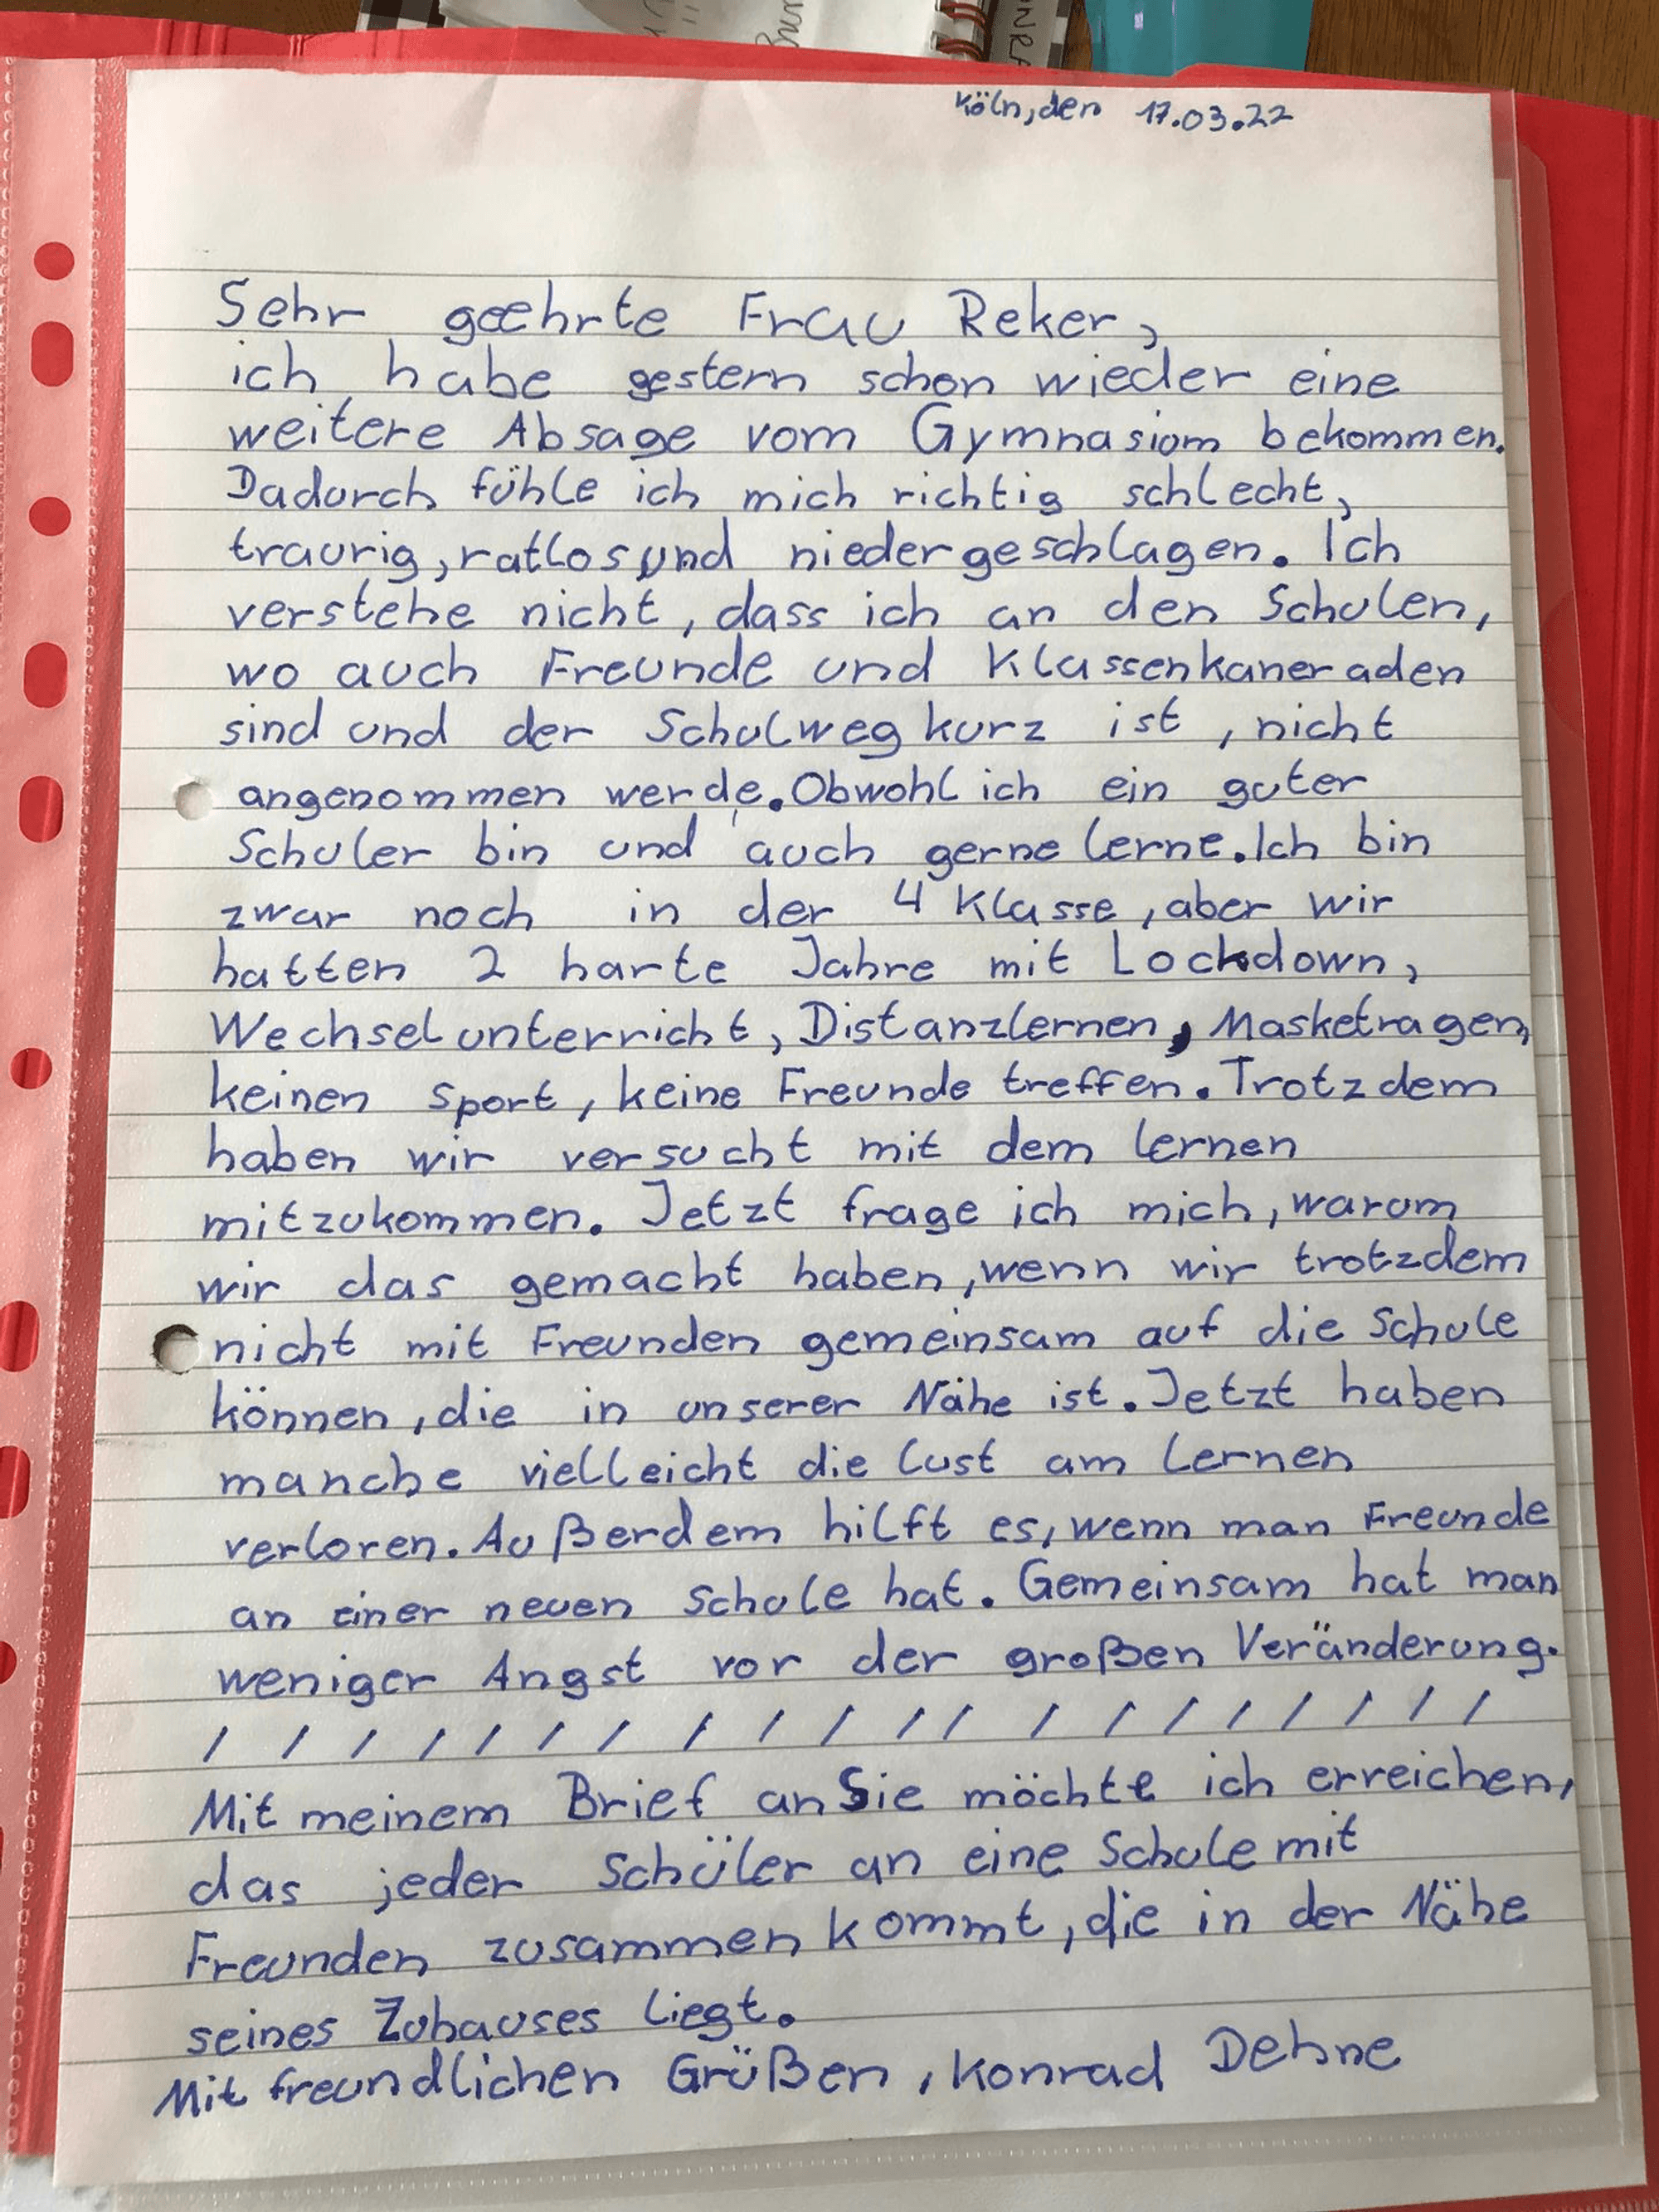 Köln, den 17.03.22
Sehr geehrte Frau Reker,
ich habe gestern schon wieder eine
weitere Absage vom Gymnasium bekommen.
Dadurch fühle ich mich richtig schlecht,
traurig, ratlos und niedergeschlagen. Ich
verstehe nicht, dass ich an den Schulen,
wo auch Freunde und Klassenkaneraden
sind und der Schulweg kurz ist, nicht
angenommen werde. Obwohl ich ein guter
Schuler bin und auch gerne lerne. Ich bin
zwar noch in der 4 Klasse, aber wir
hatten 2 harte Jahre mit Lockdown,
Wechselunterricht, Distanzlernen, Masketragen,
keinen Sport, keine Freunde treffen. Trotzdem
haben wir versucht mit dem lernen
mitzukommen. Jetzt frage ich mich, warum
wir das gemacht haben, wenn wir trotzdem
nicht mit Freunden gemeinsam auf die Schule
können, die in unserer Nähe ist. Jetzt haben
manche vielleicht die Lust am Lernen
verloren. Außerdem hilft es, wenn man Freunde
an einer neuen Schule hat. Gemeinsam hat man
weniger Angst vor der großen Veränderung.
/ / / / / / / / / / / / / / / / / / / / /
Mit meinem Brief an Sie möchte ich erreichen,
das jeder Schüler an eine Schule mit
Freunden zusammen kommt, die in der Nähe
seines Zuhauses liegt.
Mit freundlichen Grüßen, Konrad Dehne